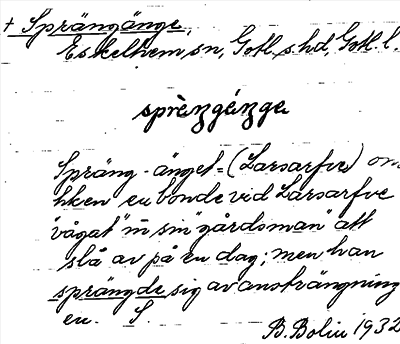 + Sprängänge,
Eskelhem sn, Gotl. s. hd, Gotl. l.
sprèŋgéŋge
Spräng-änget = (Larsarfve) om
hken en bonde vid Larsarfve
"vågat" m sin "gårdsman" att
slå av på en dag; men han
sprängde sig av ansträngning
en. S.
B. Bolin 1932